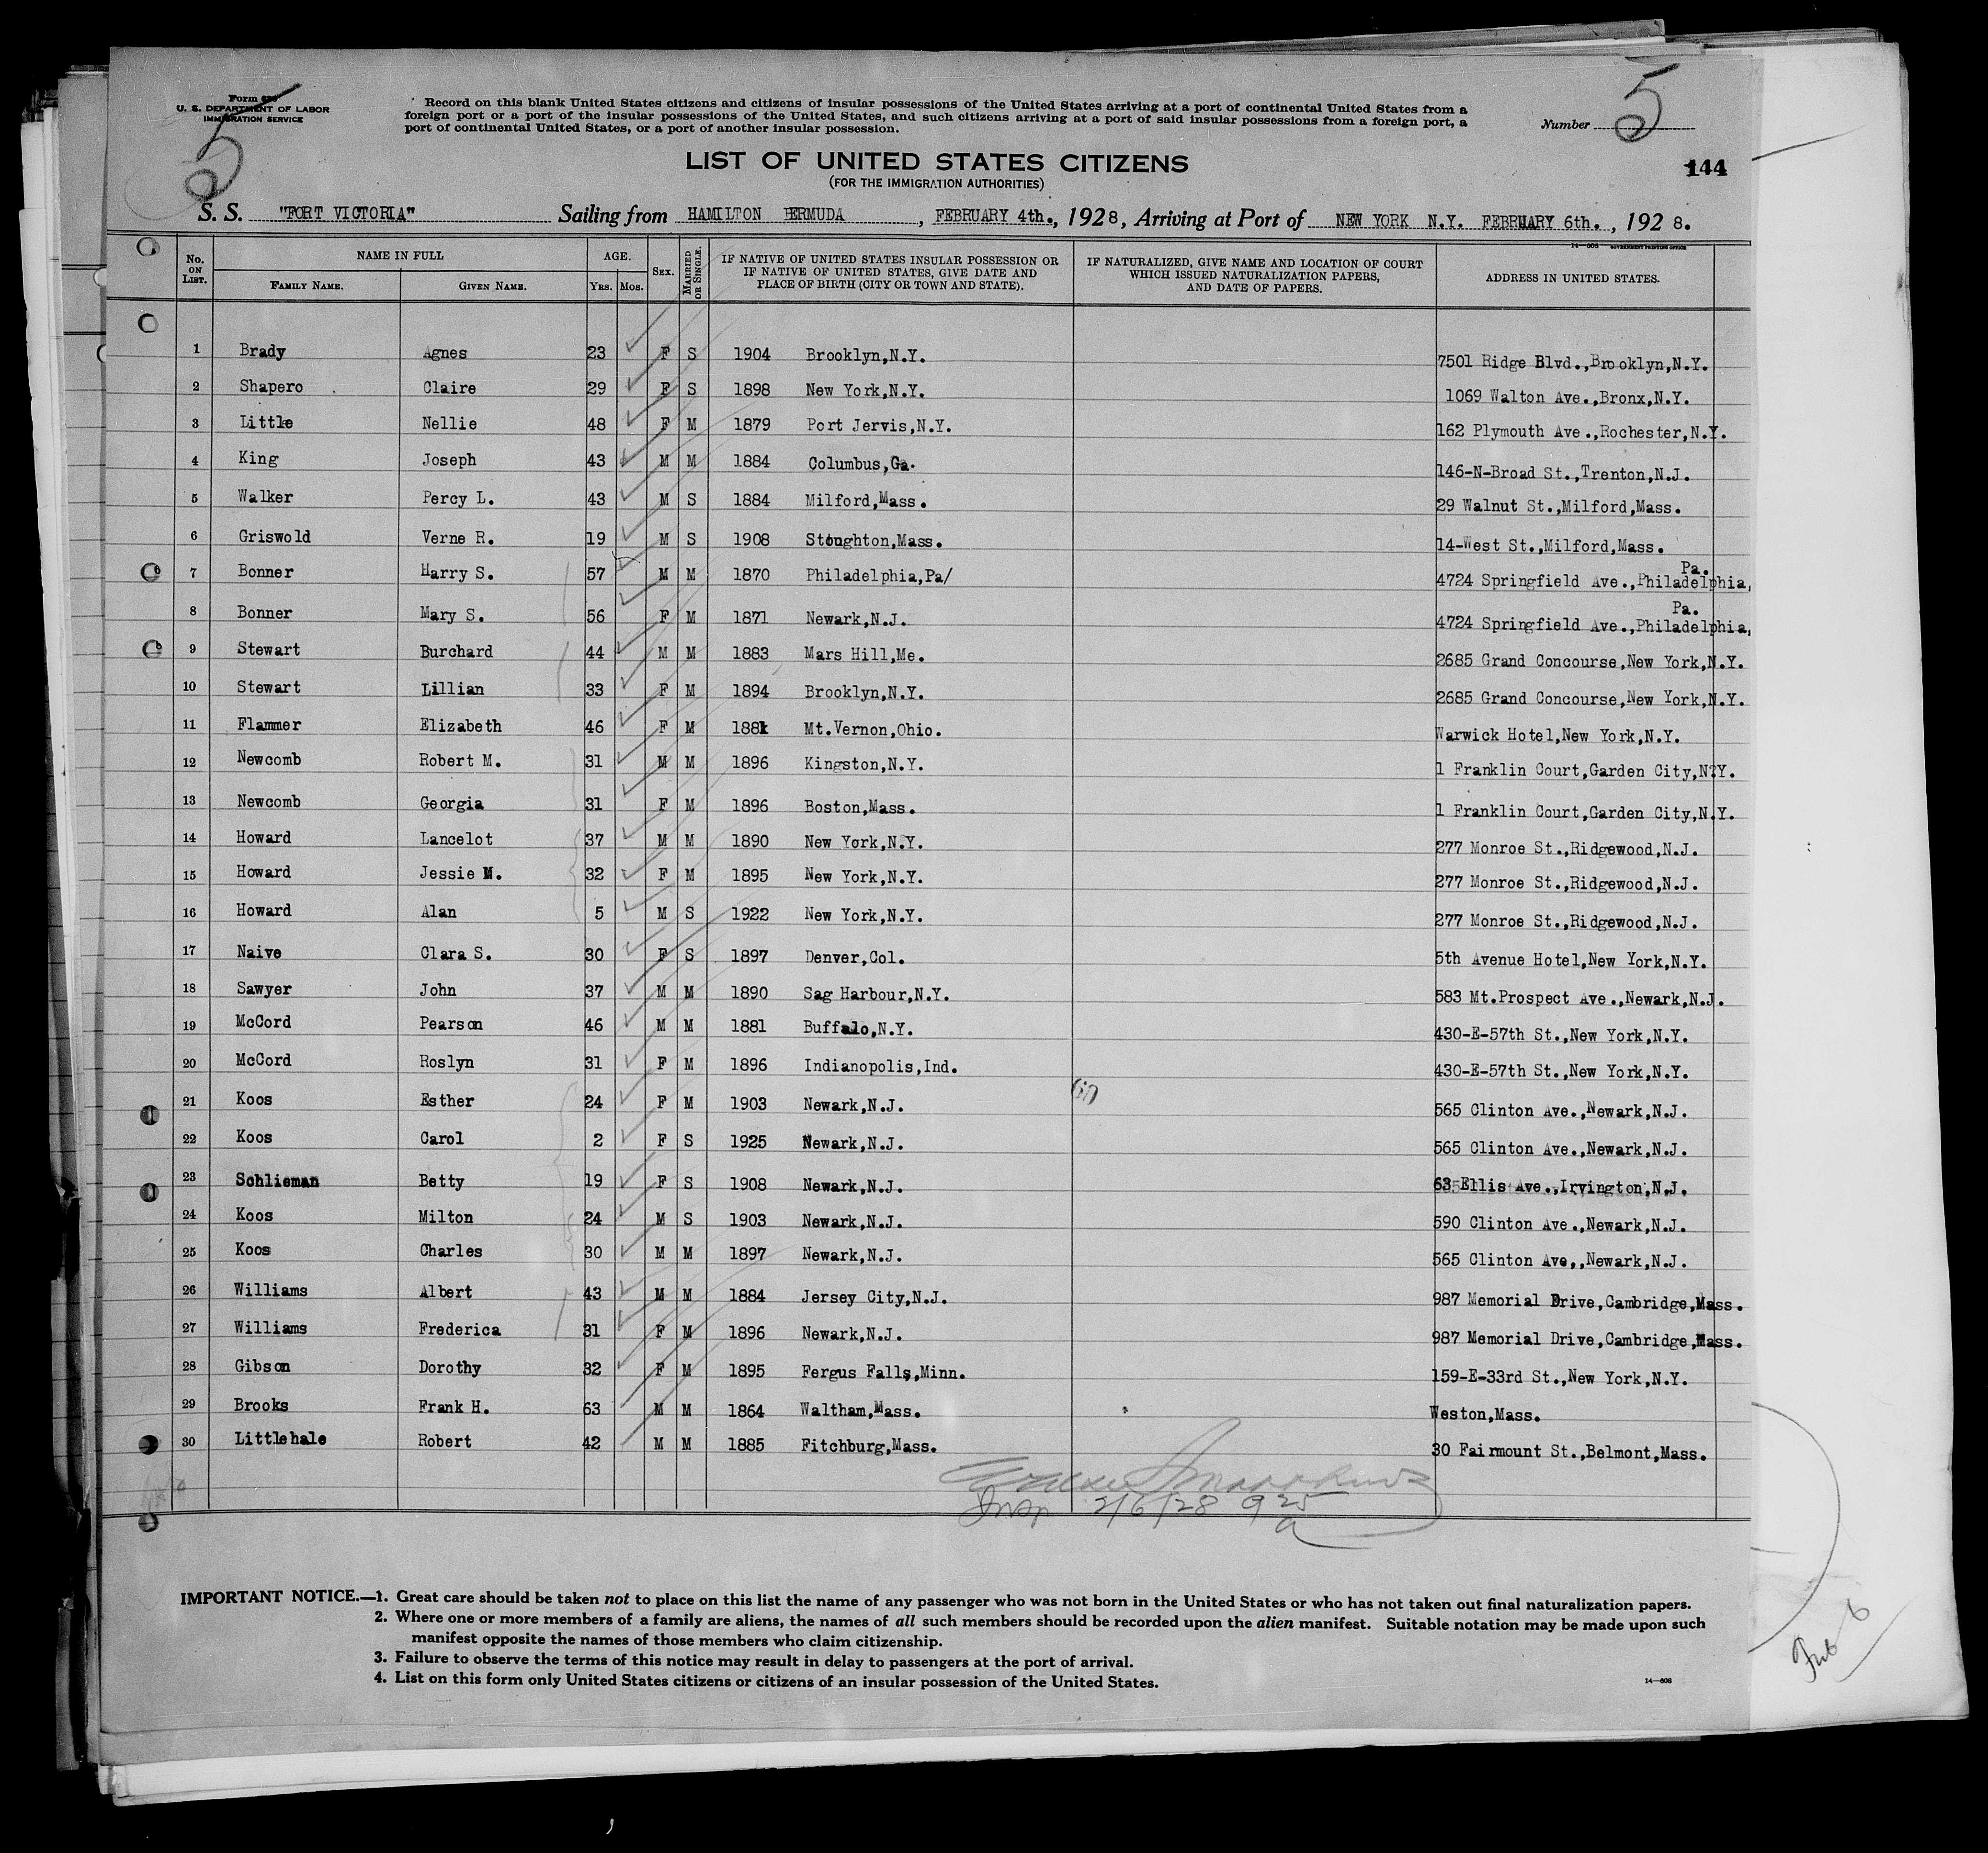 Form
U. S. DEPARTMENT OF LABOR
IMMIGRATION SERVICE
5
Record on this blank United States citizens and citizens of insular possessions of the United States arriving at a port of continental United States from a
foreign port or a port of the insular possessions of the United States, and such citizens arriving at a port of said insular possessions from a foreign port, a
port of continental United States, or a port of another insular possession.
Number 5
LIST OF UNITED STATES CITIZENS
(FOR THE IMMIGRATION AUTHORITIES)
144
S. S. "FORT VICTORIA" Sailing from HAMILTON BERMUDA, FEBRUARY 4th., 1928, Arriving at Port of NEW YORK N.Y. FEBRUARY 6th., 1928.
14—608 GOVERNMENT PRINTING OFFICE
No. ON LIST. NAME IN FULL FAMILY NAME. GIVEN NAME. AGE. YRS. MOS. SEX. MARRIED OR SINGLE. IF NATIVE OF UNITED STATES INSULAR POSSESSION OR IF NATIVE OF UNITED STATES, GIVE DATE AND PLACE OF BIRTH (CITY OR TOWN AND STATE). IF NATURALIZED, GIVE NAME AND LOCATION OF COURT WHICH ISSUED NATURALIZATION PAPERS, AND DATE OF PAPERS. ADDRESS IN UNITED STATES.
1 Brady Agnes 23 F S 1904 Brooklyn,N.Y. 7501 Ridge Blvd.,Brooklyn,N.Y.
2 Shapero Claire 29 F S 1898 New York,N.Y. 1069 Walton Ave.,Bronx,N.Y.
3 Little Nellie 48 F M 1879 Port Jervis,N.Y. 162 Plymouth Ave.,Rochester,N.Y.
4 King Joseph 43 M M 1884 Columbus,Ga. 146-N-Broad St.,Trenton,N.J.
5 Walker Percy L. 43 M S 1884 Milford,Mass. 29 Walnut St.,Milford,Mass.
6 Griswold Verne R. 19 M S 1908 Stoughton,Mass. 14-West St.,Milford,Mass.
7 Bonner Harry S. 57 M M 1870 Philadelphia,Pa/ 4724 Springfield Ave.,Philadelphia, Pa.
8 Bonner Mary S. 56 F M 1871 Newark,N.J. 4724 Springfield Ave.,Philadelphia, Pa.
9 Stewart Burchard 44 M M 1883 Mars Hill,Me. 2685 Grand Concourse,New York,N.Y.
10 Stewart Lillian 33 F M 1894 Brooklyn,N.Y. 2685 Grand Concourse,New York,N.Y.
11 Flammer Elizabeth 46 F M 1881 Mt.Vernon,Ohio. Warwick Hotel,New York,N.Y.
12 Newcomb Robert M. 31 M M 1896 Kingston,N.Y. 1 Franklin Court,Garden City,N?Y.
13 Newcomb Georgia 31 F M 1896 Boston,Mass. 1 Franklin Court,Garden City,N.Y.
14 Howard Lancelot 37 M M 1890 New York,N.Y. 277 Monroe St.,Ridgewood,N.J.
15 Howard Jessie M. 32 F M 1895 New York,N.Y. 277 Monroe St.,Ridgewood,N.J.
16 Howard Alan 5 M S 1922 New York,N.Y. 277 Monroe St.,Ridgewood,N.J.
17 Naive Clara S. 30 F S 1897 Denver,Col. 5th Avenue Hotel,New York,N.Y.
18 Sawyer John 37 M M 1890 Sag Harbour,N.Y. 583 Mt.Prospect Ave.,Newark,N.J.
19 McCord Pearson 46 M M 1881 Buffalo,N.Y. 430-E-57th St.,New York,N.Y.
20 McCord Roslyn 31 F M 1896 Indianopolis,Ind. 430-E-57th St.,New York,N.Y.
21 Koos Esther 24 F M 1903 Newark,N.J. 565 Clinton Ave.,Newark,N.J.
22 Koos Carol 2 F S 1925 Newark,N.J. 565 Clinton Ave.,Newark,N.J.
23 Schlieman Betty 19 F S 1908 Newark,N.J. 63 Ellis Ave.,Irvington,N.J.
24 Koos Milton 24 M S 1903 Newark,N.J. 590 Clinton Ave.,Newark,N.J.
25 Koos Charles 30 M M 1897 Newark,N.J. 565 Clinton Ave,,Newark,N.J.
26 Williams Albert 43 M M 1884 Jersey City,N.J. 987 Memorial Drive,Cambridge,Mass.
27 Williams Frederica 31 F M 1896 Newark,N.J. 987 Memorial Drive,Cambridge,Mass.
28 Gibson Dorothy 32 F M 1895 Fergus Falls,Minn. 159-E-33rd St.,New York,N.Y.
29 Brooks Frank H. 63 M M 1864 Waltham,Mass. Weston,Mass.
30 Littlehale Robert 42 M M 1885 Fitchburg,Mass. 30 Fairmount St.,Belmont,Mass.
Insp 2/6/28 9 25 a
IMPORTANT NOTICE.—1. Great care should be taken not to place on this list the name of any passenger who was not born in the United States or who has not taken out final naturalization papers.
2. Where one or more members of a family are aliens, the names of all such members should be recorded upon the alien manifest. Suitable notation may be made upon such
manifest opposite the names of those members who claim citizenship.
3. Failure to observe the terms of this notice may result in delay to passengers at the port of arrival.
4. List on this form only United States citizens or citizens of an insular possession of the United States.
14—608
Feb 6